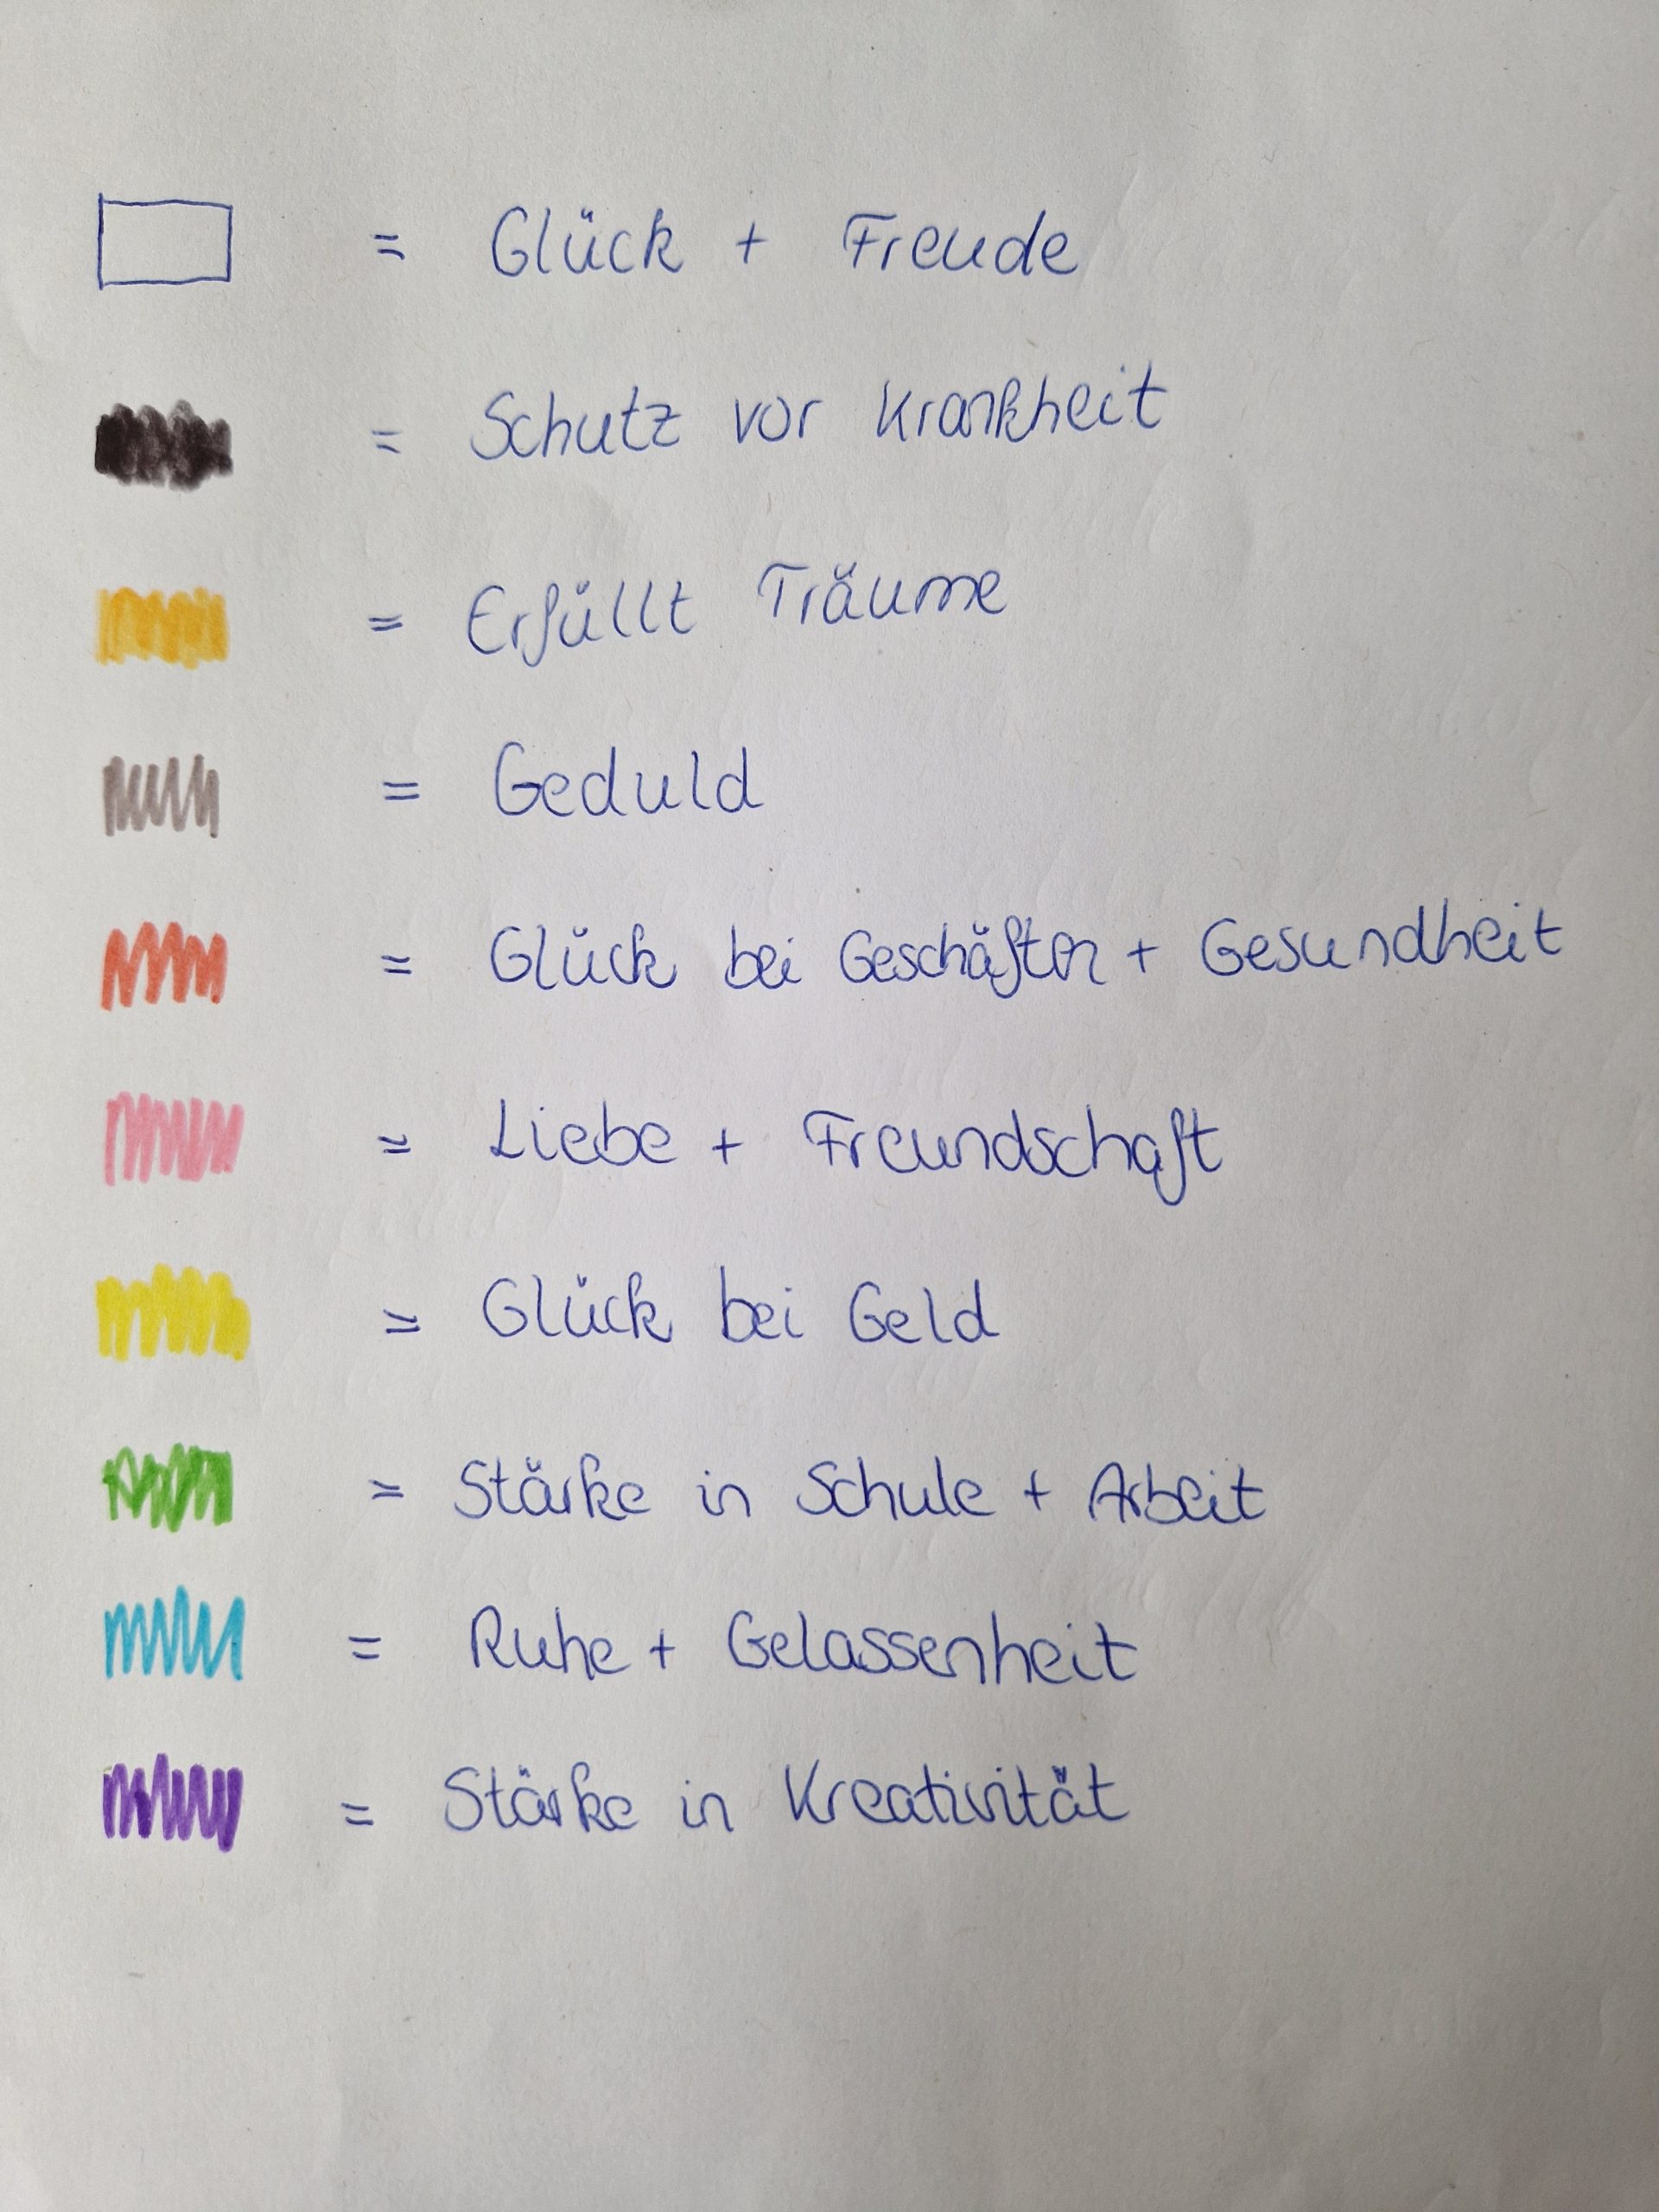 = Glück + Freude
= Schutz vor Krankheit
= Erfüllt Träume
= Geduld
= Glück bei Geschäften + Gesundheit
= Liebe + Freundschaft
= Glück bei Geld
= Stärke in Schule + Arbeit
= Ruhe + Gelassenheit
= Stärke in Kreativität